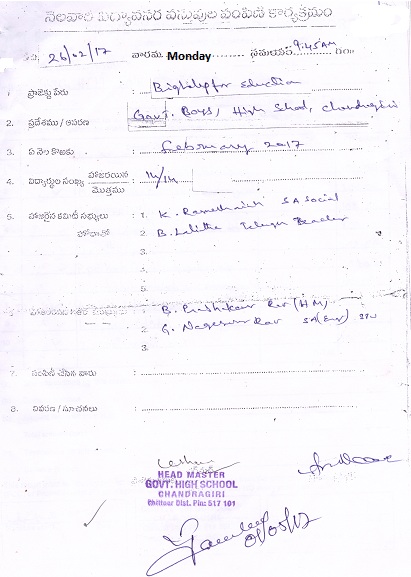 నెలవారి విద్యావసర వస్తువుల పంపిణీ కార్యక్రమం
26/02/17 వారము Monday సమయం 9:45AM
1 ప్రాజెక్టు పేరు : for Education
2. ప్రదేశము / వివరణ : Govt. Boys, High School, Chandragiri
3. ఏ నెల కొరకు : February 2017
4. విద్యార్థుల సంఖ్య హాజరయిన / మొత్తము : 14/14
5. హాజరైన కమిటీ సభ్యులు : 1. K. Ramachaiah SA Social
హోదాతో 2. B. Lalitha Telugu Teacher
3.
1. B. Prabhakar Rao (HM)
2. G. Nageswar Rao SA(Eng)
3.
7. పంపిణీ చేసిన వారు :
8. వివరణ / సూచనలు :
HEAD MASTER
GOVT. HIGH SCHOOL
CHANDRAGIRI
Chittoor Dist. Pin: 517 101